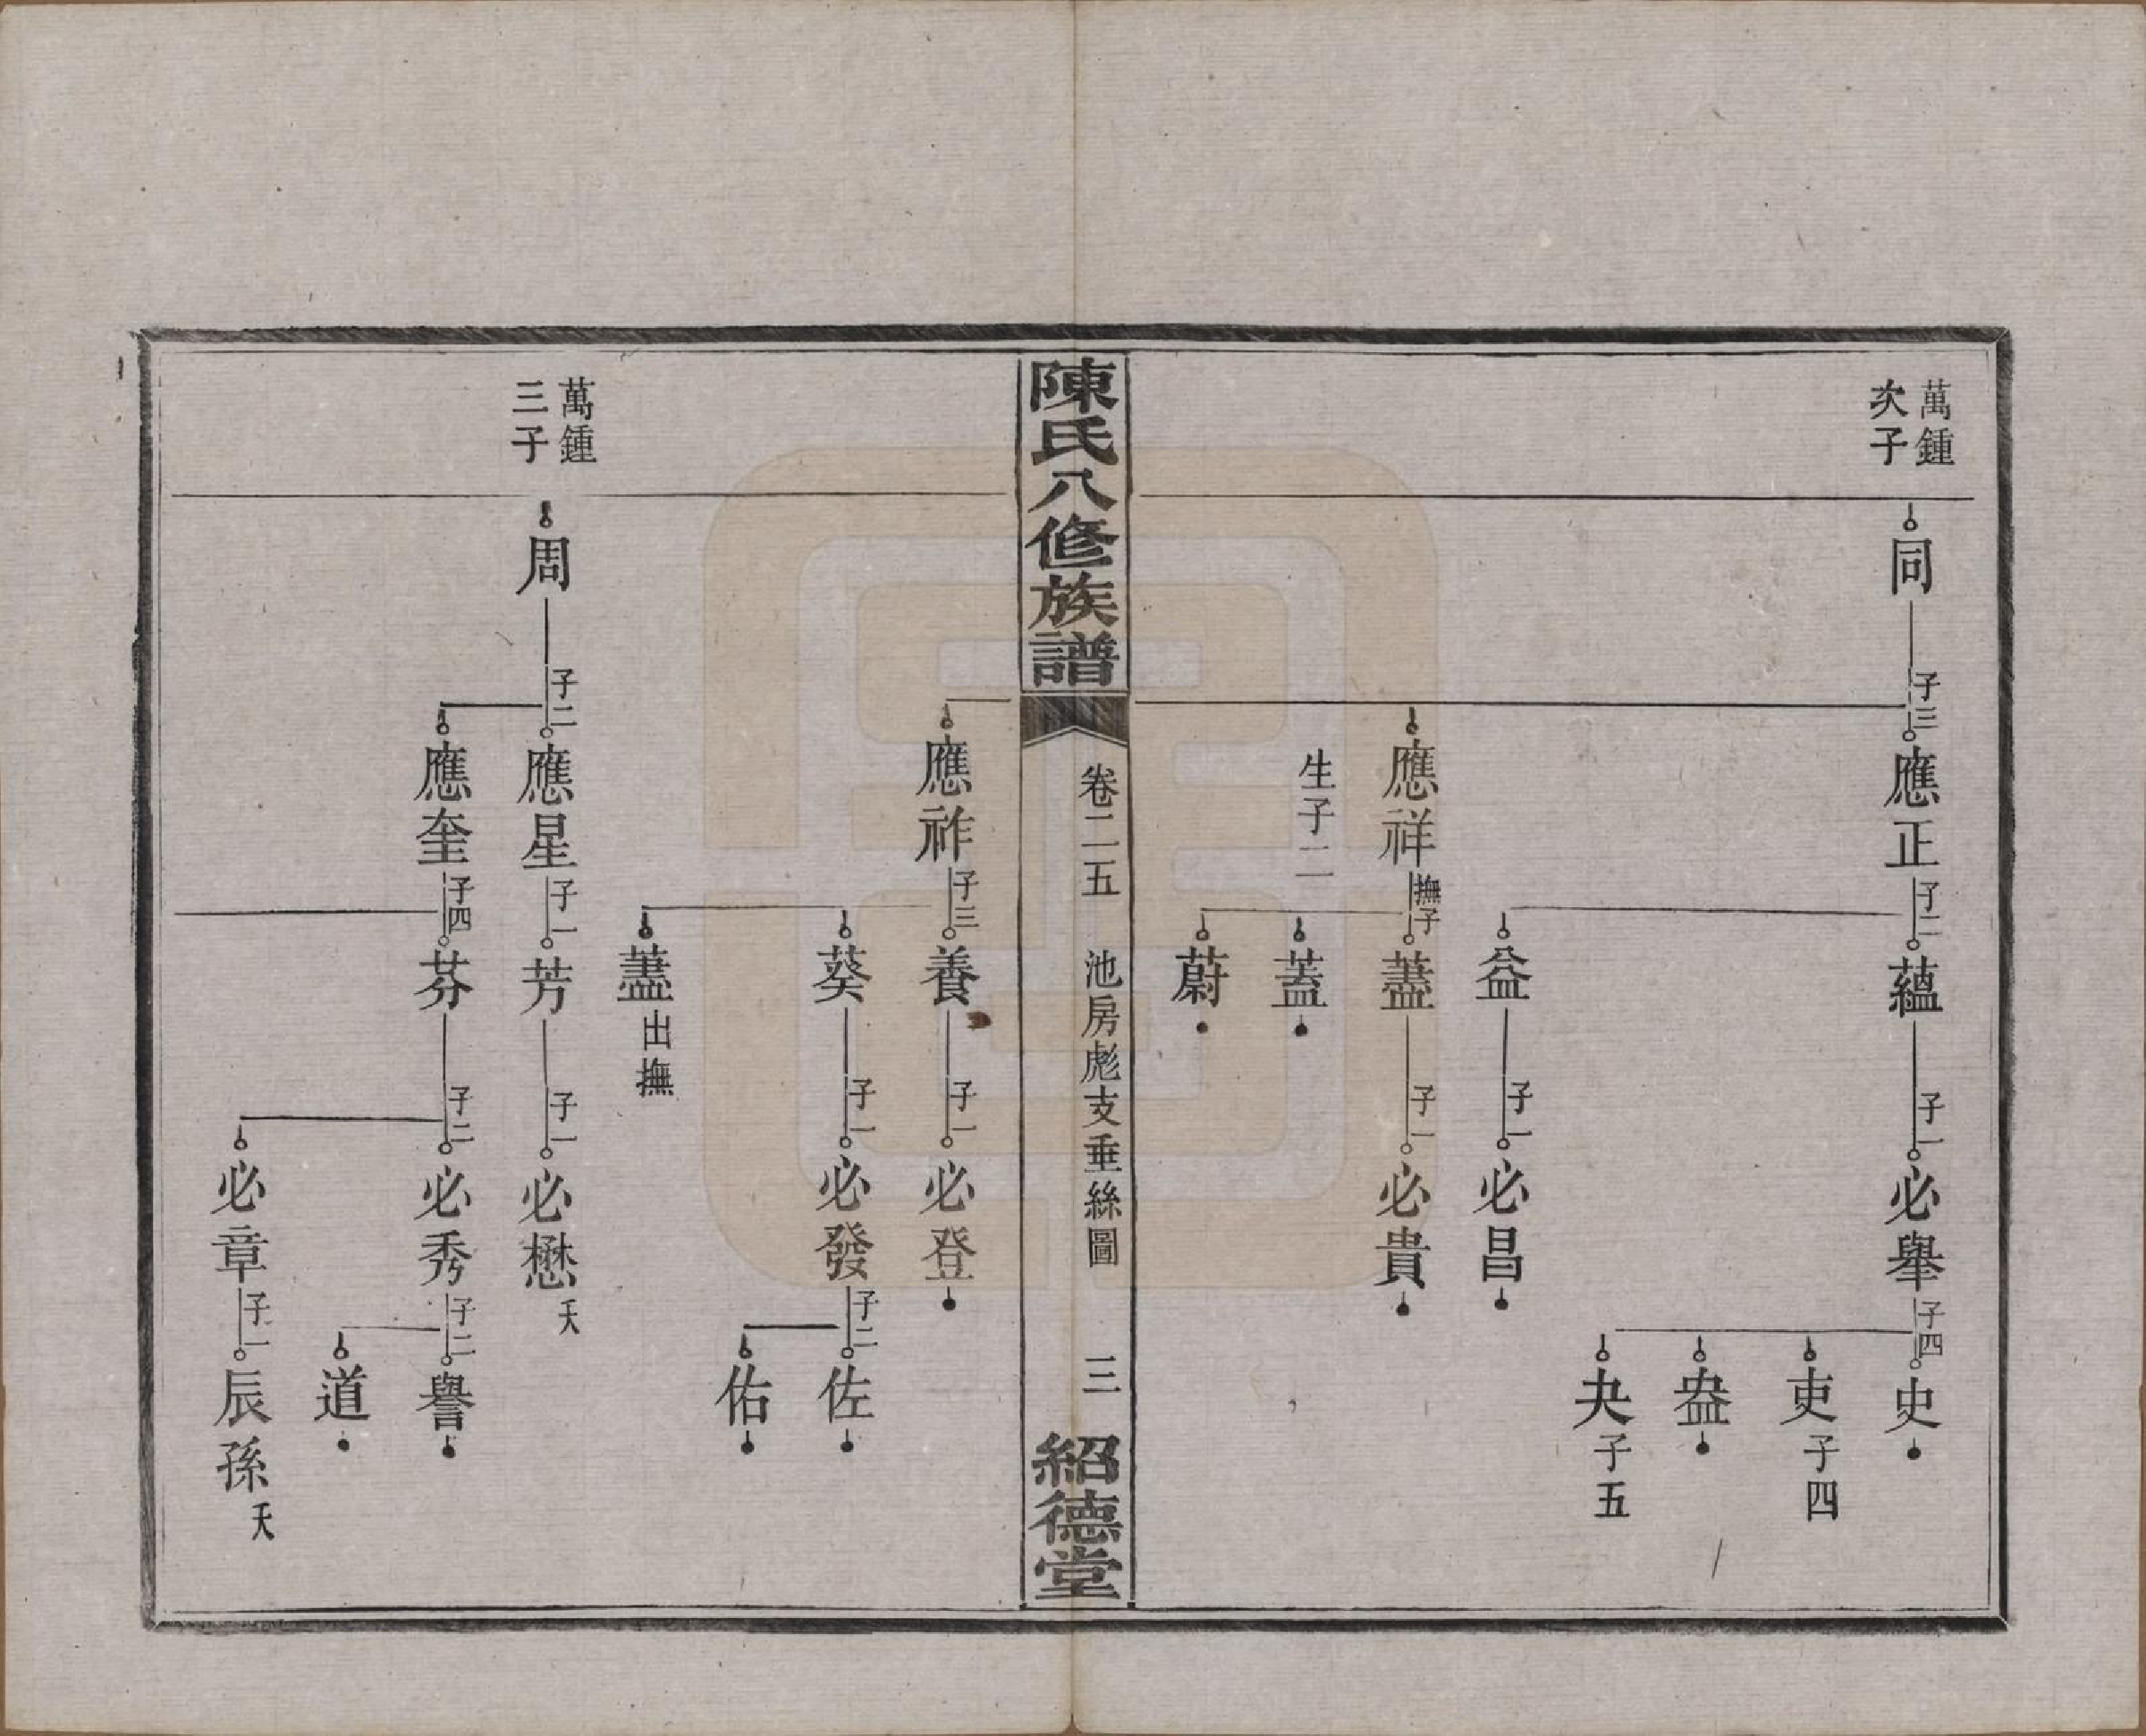 萬鍾
次子
同
子三
應正
子二
蘊
子一
必舉
子四
史
吏
子四
盎
夬
子五
益
子一
必昌
應祥
撫子
藎
子一
必貴
生子二
蓋
蔚
陳氏八修族譜
卷二五
池房彪支垂絲圖
三
紹德堂
應祚
子三
養
子一
必登
葵
子一
必發
子二
佐
佑
藎
出撫
萬鍾
三子
周
子二
應星
子一
芳
子一
必懋
夭
應奎
子四
芬
子二
必秀
子二
譽
道
必章
子一
辰孫
夭